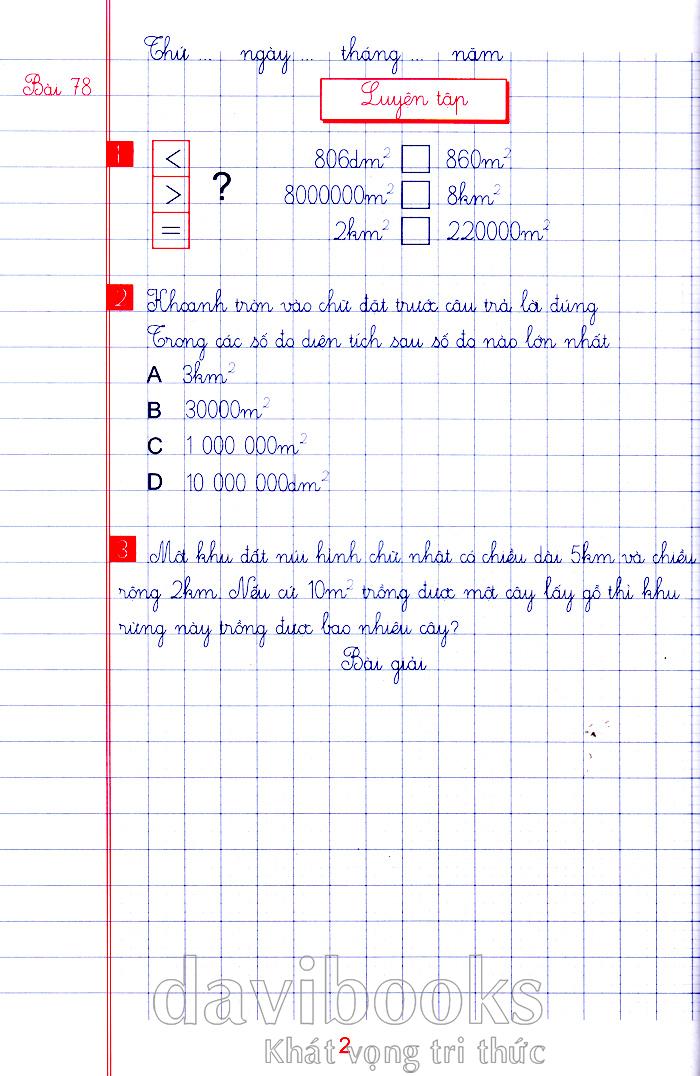 Thứ ... ngày ... tháng ... năm
Bài 78
Luyện tập
1 < 806dm² 860m²
> ? 8000000m² 8km²
= 2km² 220000m²
2 Khoanh tròn vào chữ đặt trước câu trả lời đúng
Trong các số đo diện tích sau số đo nào lớn nhất
A 3km²
B 30000m²
C 1 000 000m²
D 10 000 000dm²
3 Một khu đất núi hình chữ nhật có chiều dài 5km và chiều
rộng 2km. Nếu cứ 10m² trồng được một cây lấy gỗ thì khu
rừng này trồng được bao nhiêu cây?
Bài giải
davibooks
2
Khát vọng tri thức